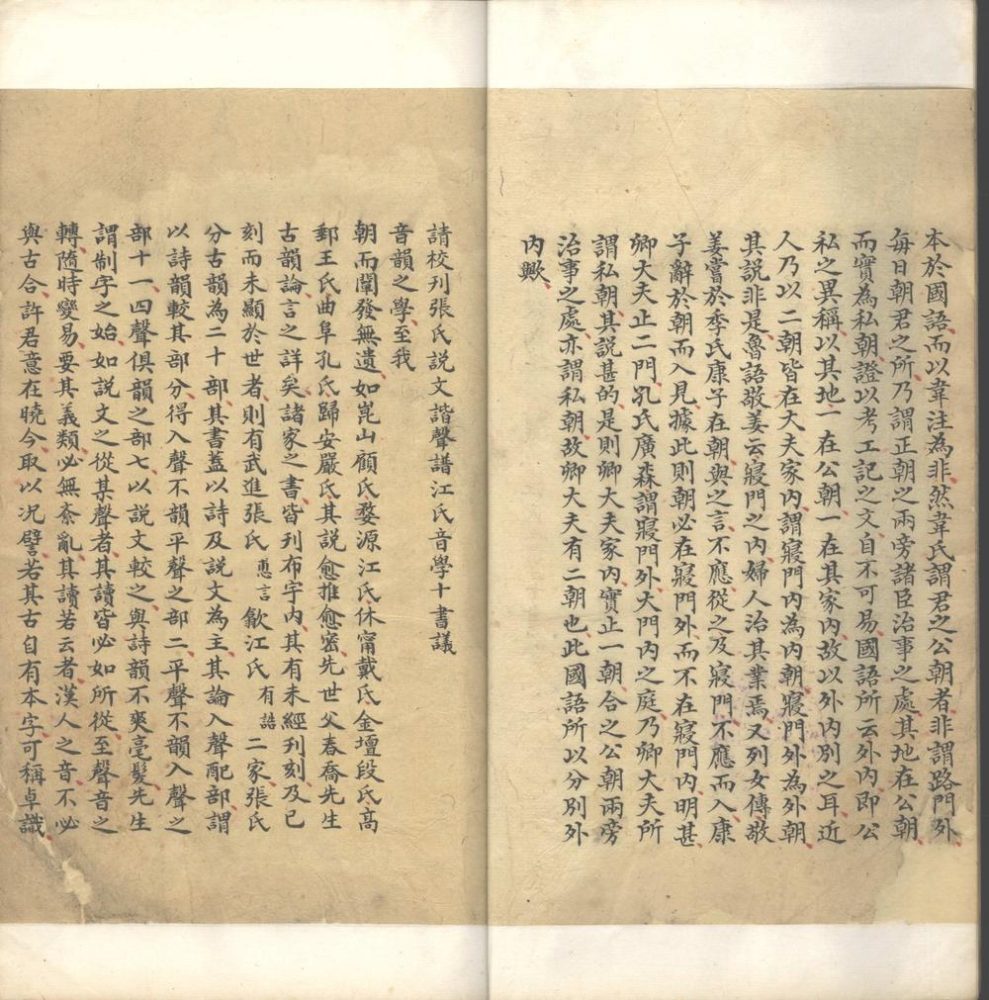 本於國語而以韋注為非然韋氏謂君之公朝者非謂路門外
每日朝君之所乃謂正朝之兩旁諸臣治事之處其地在公朝
而實為私朝證以考工記之文自不可易國語所云外內即公
私之異稱以其地一在公朝一在其家內故以外內別之耳近
人乃以二朝皆在大夫家內謂寢門內為內朝寢門外為外朝
其說非是魯語敬姜云寢門之內婦人治其業焉又列女傳敬
姜嘗於季氏康子在朝與之言不應從之及寢門不應而入康
子辭於朝而入見據此則朝必在寢門外而不在寢門內明甚
卿大夫止二門孔氏廣森謂寢門外大門內之庭乃卿大夫所
謂私朝其說甚的是則卿大夫家內實止一朝合之公朝兩旁
治事之處亦謂私朝故卿大夫有二朝也此國語所以分別外
內歟
請校刊張氏說文諧聲譜江氏音學十書議
音韻之學至我
朝而闡發無遺如崑山顧氏婺源江氏休甯戴氏金壇段氏高
郵王氏曲阜孔氏歸安嚴氏其說愈推愈密先世父春喬先生
古韻論言之詳矣諸家之書皆刊布宇內其有未經刊刻及已
刻而未顯於世者則有武進張氏惠言歙江氏有誥二家張氏
分古韻為二十部其書蓋以詩及說文為主其論入聲配部謂
以詩韻較其部分得入聲不韻平聲之部二平聲不韻入聲之
部十一四聲俱韻之部七以說文較之與詩韻不爽毫髮先生
謂制字之始如說文之從某聲者其讀皆必如所從至聲音之
轉隨時變易要其義類必無紊亂其讀若云者漢人之音不必
與古合許君意在曉今取以況譬若其古自有本字可稱卓識